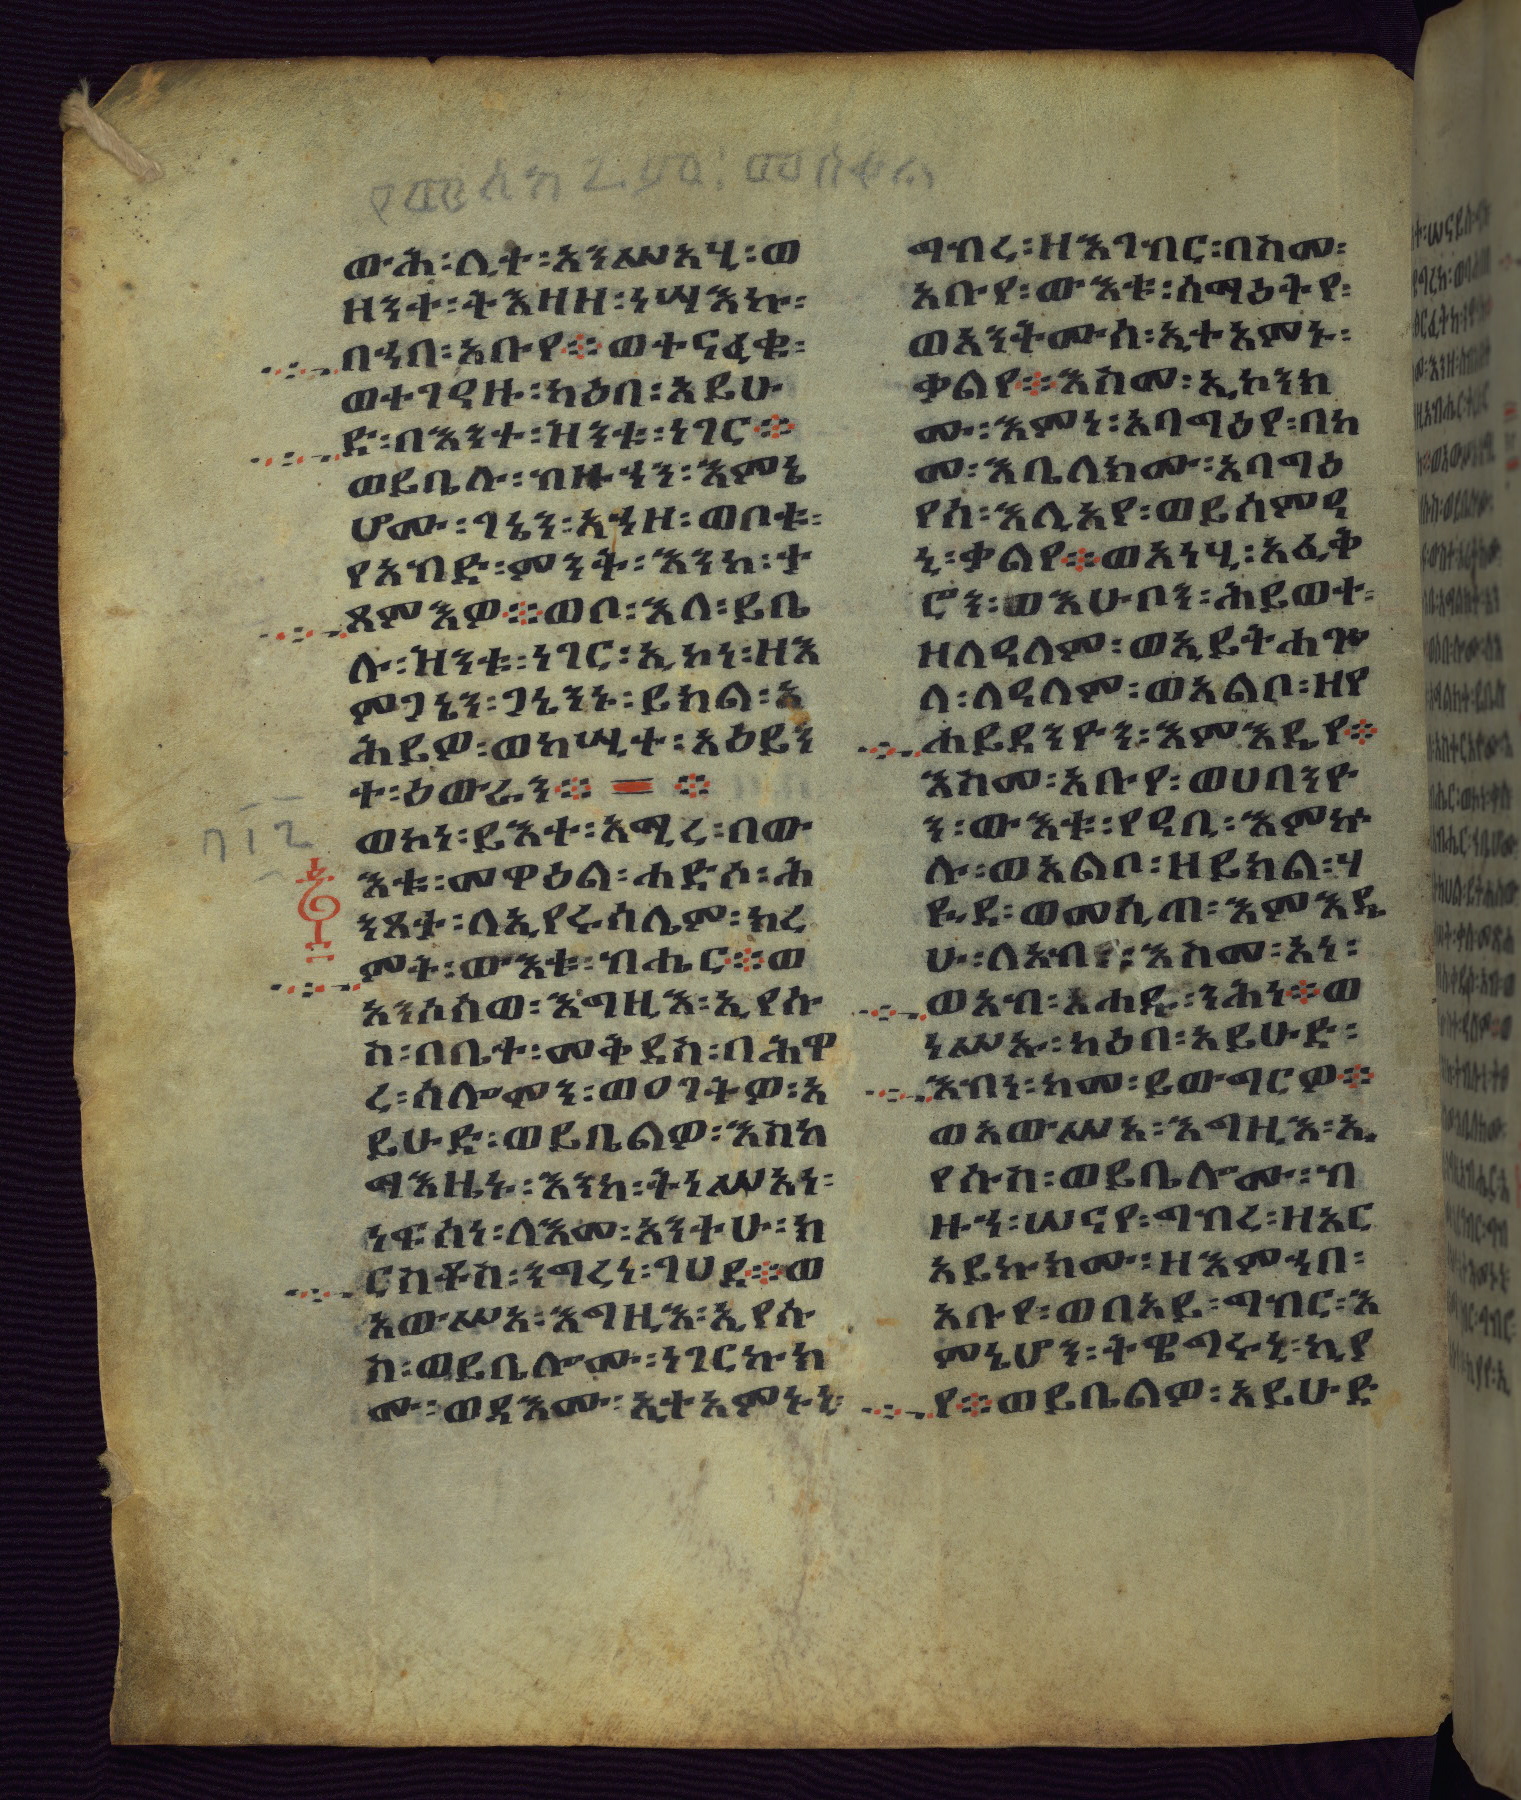 የመስከረም፡ መስቀል
ውሕ፡ ሊተ፡ አንሥአሂ፡ ወ
ዘንተ፡ ትእዛዘ፡ ነሣእኩ፡
በኀበ፡ አቡየ። ወተናፈቁ፡
ወተገዳዙ፡ ካዕበ፡ አይሁ
ድ፡ በእንተ፡ ዝንቱ፡ ነገር።
ወይቤሉ፡ ብዙኃን፡ እምኔ
ሆሙ፡ ጋኔን፡ አኀዘ፡ ወቦቱ፡
የአብድ፡ ምንት፡ እንከ፡ ተ
ጸምእዎ። ወቦ፡ እለ፡ ይቤ
ሉ፡ ዝንቱ፡ ነገር፡ ኢኮነ፡ ዘእ
ምጋኔን፡ ጋኔንኑ፡ ይክል፡ አ
ሕይዎ፡ ወከሢተ፡ አዕይን
ተ፡ ዕውራን።
ወኮነ፡ ይእተ፡ አሚረ፡ በው
እቱ፡ መዋዕል፡ ሐድሶ፡ ሕ
ንጸቱ፡ ለኢየሩሳሌም፡ ክረ
ምት፡ ውእቱ፡ ብሔር። ወ
አንሶሰወ፡ እግዚእ፡ ኢየሱ
ስ፡ በቤተ፡ መቅደስ፡ በሕዋ
ረ፡ ሰሎሞን፡ ወዐገትዎ፡ አ
ይሁድ፡ ወይቤልዎ፡ እስከ
ማእዜኑ፡ እንከ፡ ትነሥአነ፡
ነፍሰነ፡ ለእመ፡ አንተ፡ ሁ፡ ክ
ርስቶስ፡ ንግረነ፡ ገሀደ። ወ
አውሥአ፡ እግዚእ፡ ኢየሱ
ስ፡ ወይቤሎሙ፡ ነገርኩክ
ሙ፡ ወዳእሙ፡ ኢተአምኑኒ፡
ግብረ፡ ዘእገብር፡ በስመ፡
አቡየ፡ ውእቱ፡ ሰማዕትየ፡
ወአንትሙሰ፡ ኢተአምኑ፡
ቃልየ። እስመ፡ ኢኮንክ
ሙ፡ እምነ፡ አባግዕየ፡ በከ
መ፡ እቤለክሙ፡ አባግዕ
የሰ፡ እሊአየ፡ ወይሰምዓ
ኒ፡ ቃልየ። ወአነሂ፡ አፈቅ
ሮን፡ ወእሁቦን፡ ሕይወተ፡
ዘለዓለም፡ ወኢይትሐጐ
ላ፡ ለዓለም፡ ወአልቦ፡ ዘየ
ሐይደንዮን፡ እምእዴየ።
እስመ፡ አቡየ፡ ወሀበንዮ
ን፡ ውእቱ፡ የዓቢ፡ እምኵ
ሉ፡ ወአልቦ፡ ዘይክል፡ ሃ
ይደ፡ ወመሲጠ፡ እምእዴ
ሁ፡ ለአቡየ፡ እስመ፡ አነ፡
ወአብ፡ አሐዱ፡ ንሕነ። ወ
ነሥኡ፡ ካዕበ፡ አይሁድ፡
እብነ፡ ከመ፡ ይውግርዎ።
ወአውሥአ፡ እግዚእ፡ ኢ
የሱስ፡ ወይቤሎሙ፡ ብ
ዙኀ፡ ሠናየ፡ ግብረ፡ ዘአር
አይኩክሙ፡ ዘእምኀበ፡
አቡየ፡ ወበአይ፡ ግብር፡ እ
ምኔሆን፡ ትዌግሩኒ፡ ኪያ
የ። ወይቤልዎ፡ አይሁድ